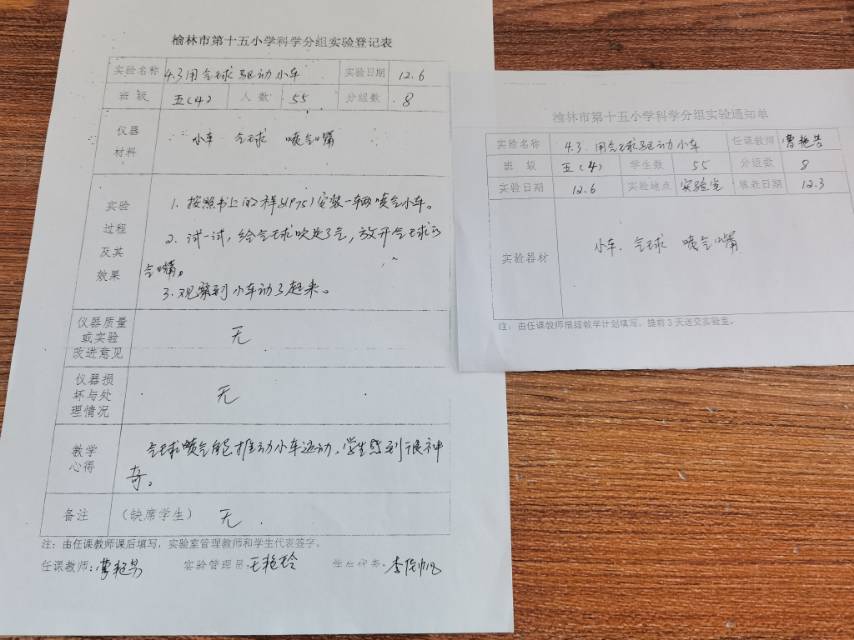 榆林市第十五小学科学分组实验登记表
实验名称 4.3用气球驱动小车 实验日期 12.6
班级 五(4) 人数 55 分组数 8
仪器材料 小车 气球 喷气嘴
实验过程及其效果
1. 按照书上的样(P75)安装一车辆喷气小车。
2. 试一试,给气球吹足了气,放开气球的
气嘴。
3. 观察到小车动了起来。
仪器质量或实验改进意见 无
仪器损坏与处理情况 无
教学心得 气球喷气能推动小车运动。学生感到很神
奇。
备注 (缺席学生) 无.
注:由任课教师课后填写,实验室管理教师和学生代表签字。
任课教师: 实验管理员:王艳玲 学生代表:
榆林市第十五小学科学分组实验通知单
实验名称 4.3 用气球驱动小车 任课教师
班级 五(4) 学生数 55 分组数 8
实验日期 12.6 实验地点 实验室 填表日期 12.3
实验器材 小车、气球 喷气嘴
注:由任课教师根据教学计划填写,提前3天送交实验室。